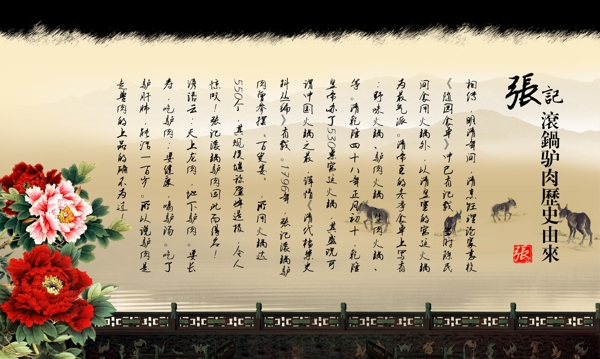 張記
滾鍋驴肉歷史由來
張
相傳，明清年间，清烹饪理论家袁枚
《随园食单》中已有记载，當时除民
间食用火锅外，以清皇室的宫廷火锅
为最气派。清帝王的冬季食单上写有
：野味火锅、驴肉火锅、羊肉火锅、
等。清乾隆四十八年正月初十，乾隆
皇帝办了530桌宫廷火锅，其盛况可
谓中国火锅之最。详情《清代档案史
料丛编》有载。1796年，张记滚锅驴
肉曾参摆、百叟宴、所用火锅达
550个，其规模堪称登峰造极，令人
惊叹！张记滚锅驴肉因此而得名！
谚语云：天上龙肉，地下驴肉。要长
寿，吃驴肉；要健康，喝驴汤。吃了
驴肝肺，能活一百岁。所以说驴肉是
走兽肉的上品的确不为过